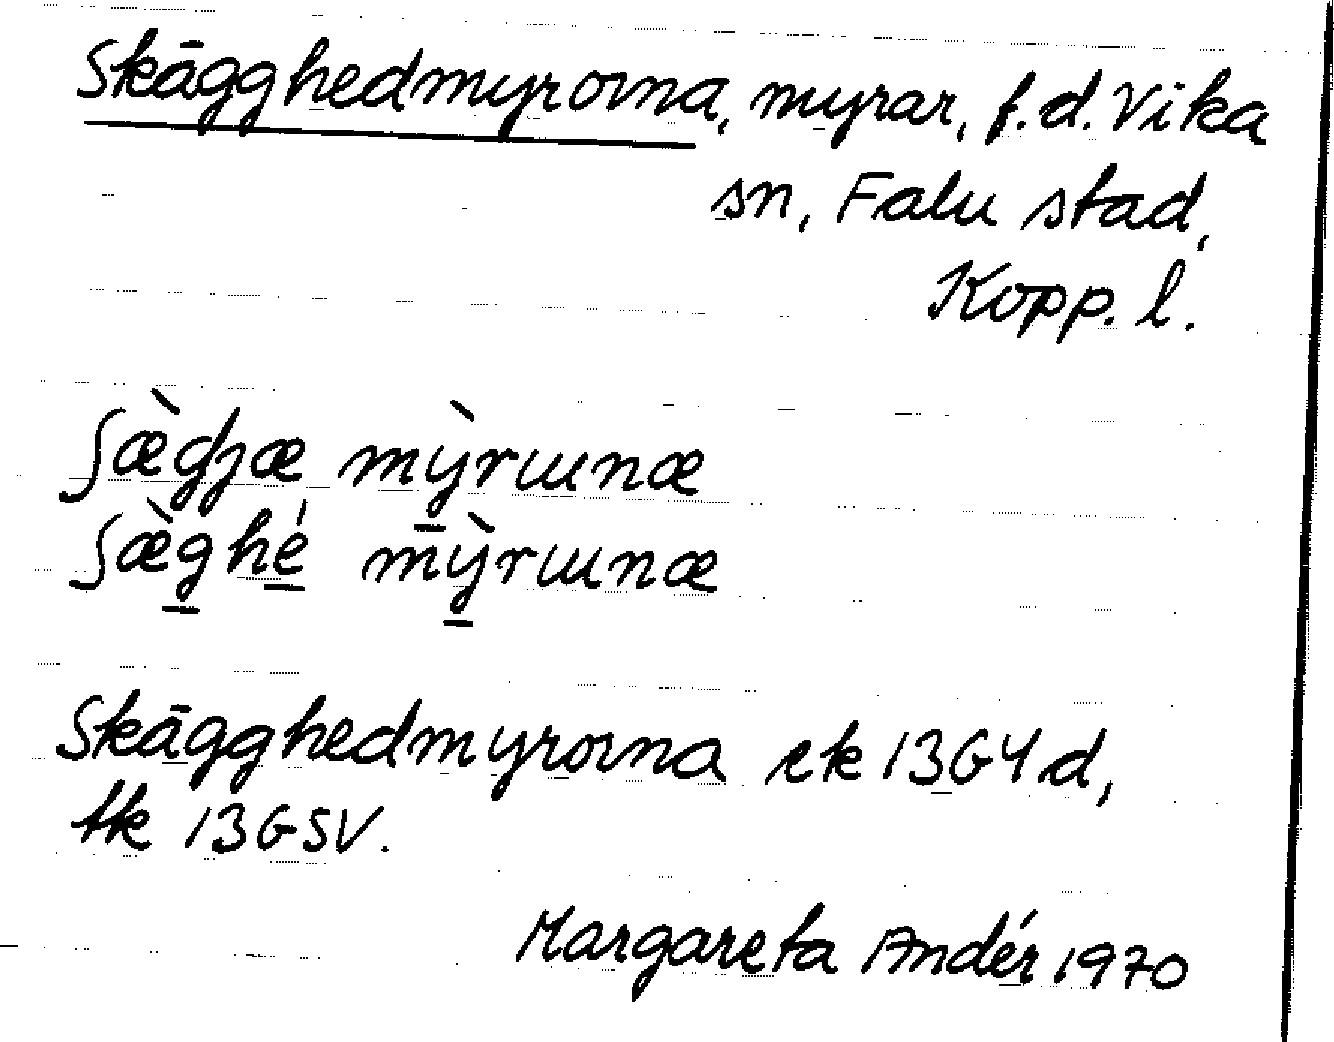 Skägghedmyrorna, myrar, f.d. Vika
sn, Falu stad,
Kopp. l.
ʃæ̀gʒæ mỳrɯnæ
ʃæ̀ghé mỳrɯnæ
Skägghedmyrorna ek 13G4d,
tk 13GSV.
Margareta Andér 1970